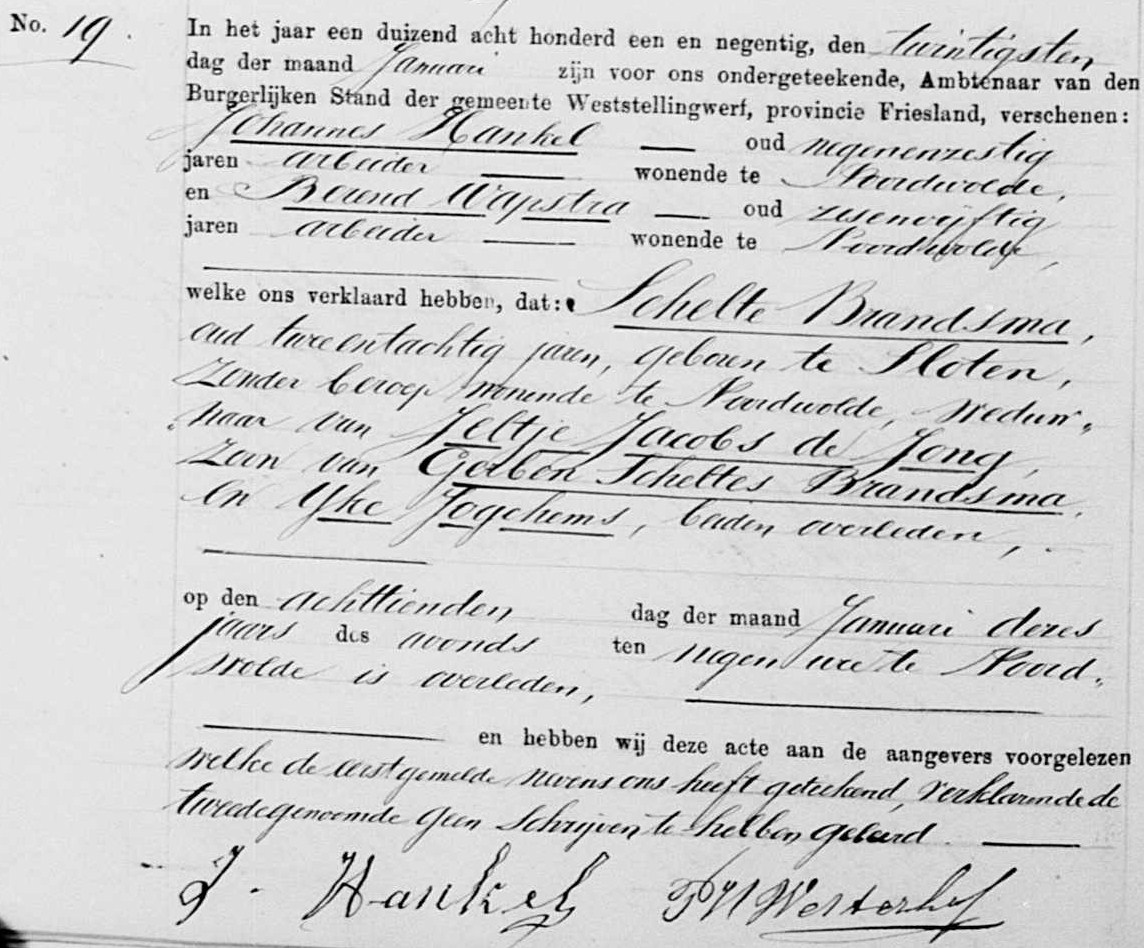 No. 19.
In het jaar een duizend acht honderd een en negentig, den twintigsten
dag der maand Januari zijn voor ons ondergeteekende, Ambtenaar van den
Burgerlijken Stand der gemeente Weststellingwerf, provincie Friesland, verschenen:
Johannes Hankel — oud negenenzestig
jaren arbeider — wonende te Noordwolde,
en Berend Wapstra — oud zesenvijftig
jaren arbeider — wonende te Noordwolde,
welke ons verklaard hebben, dat: Schelte Brandsma,
oud tweeentachtig jaren, geboren te Sloten,
zonder beroep wonende te Noordwolde, weduw„
„naar van Jeltje Jacobs de Jong,
zoon van Gerben Scheltes Brandsma
en IJke Jogchems, beiden overleden,
op den achttienden dag der maand Januari dezes
jaars des avonds ten negen ure te Noord„
wolde is overleden,
en hebben wij deze acte aan de aangevers voorgelezen
welke de eerstgemelde nevens ons heeft geteekend, verklarende de
tweedegenoemde geen schrijven te hebben geleerd.
J. Hankel PH Westerhof